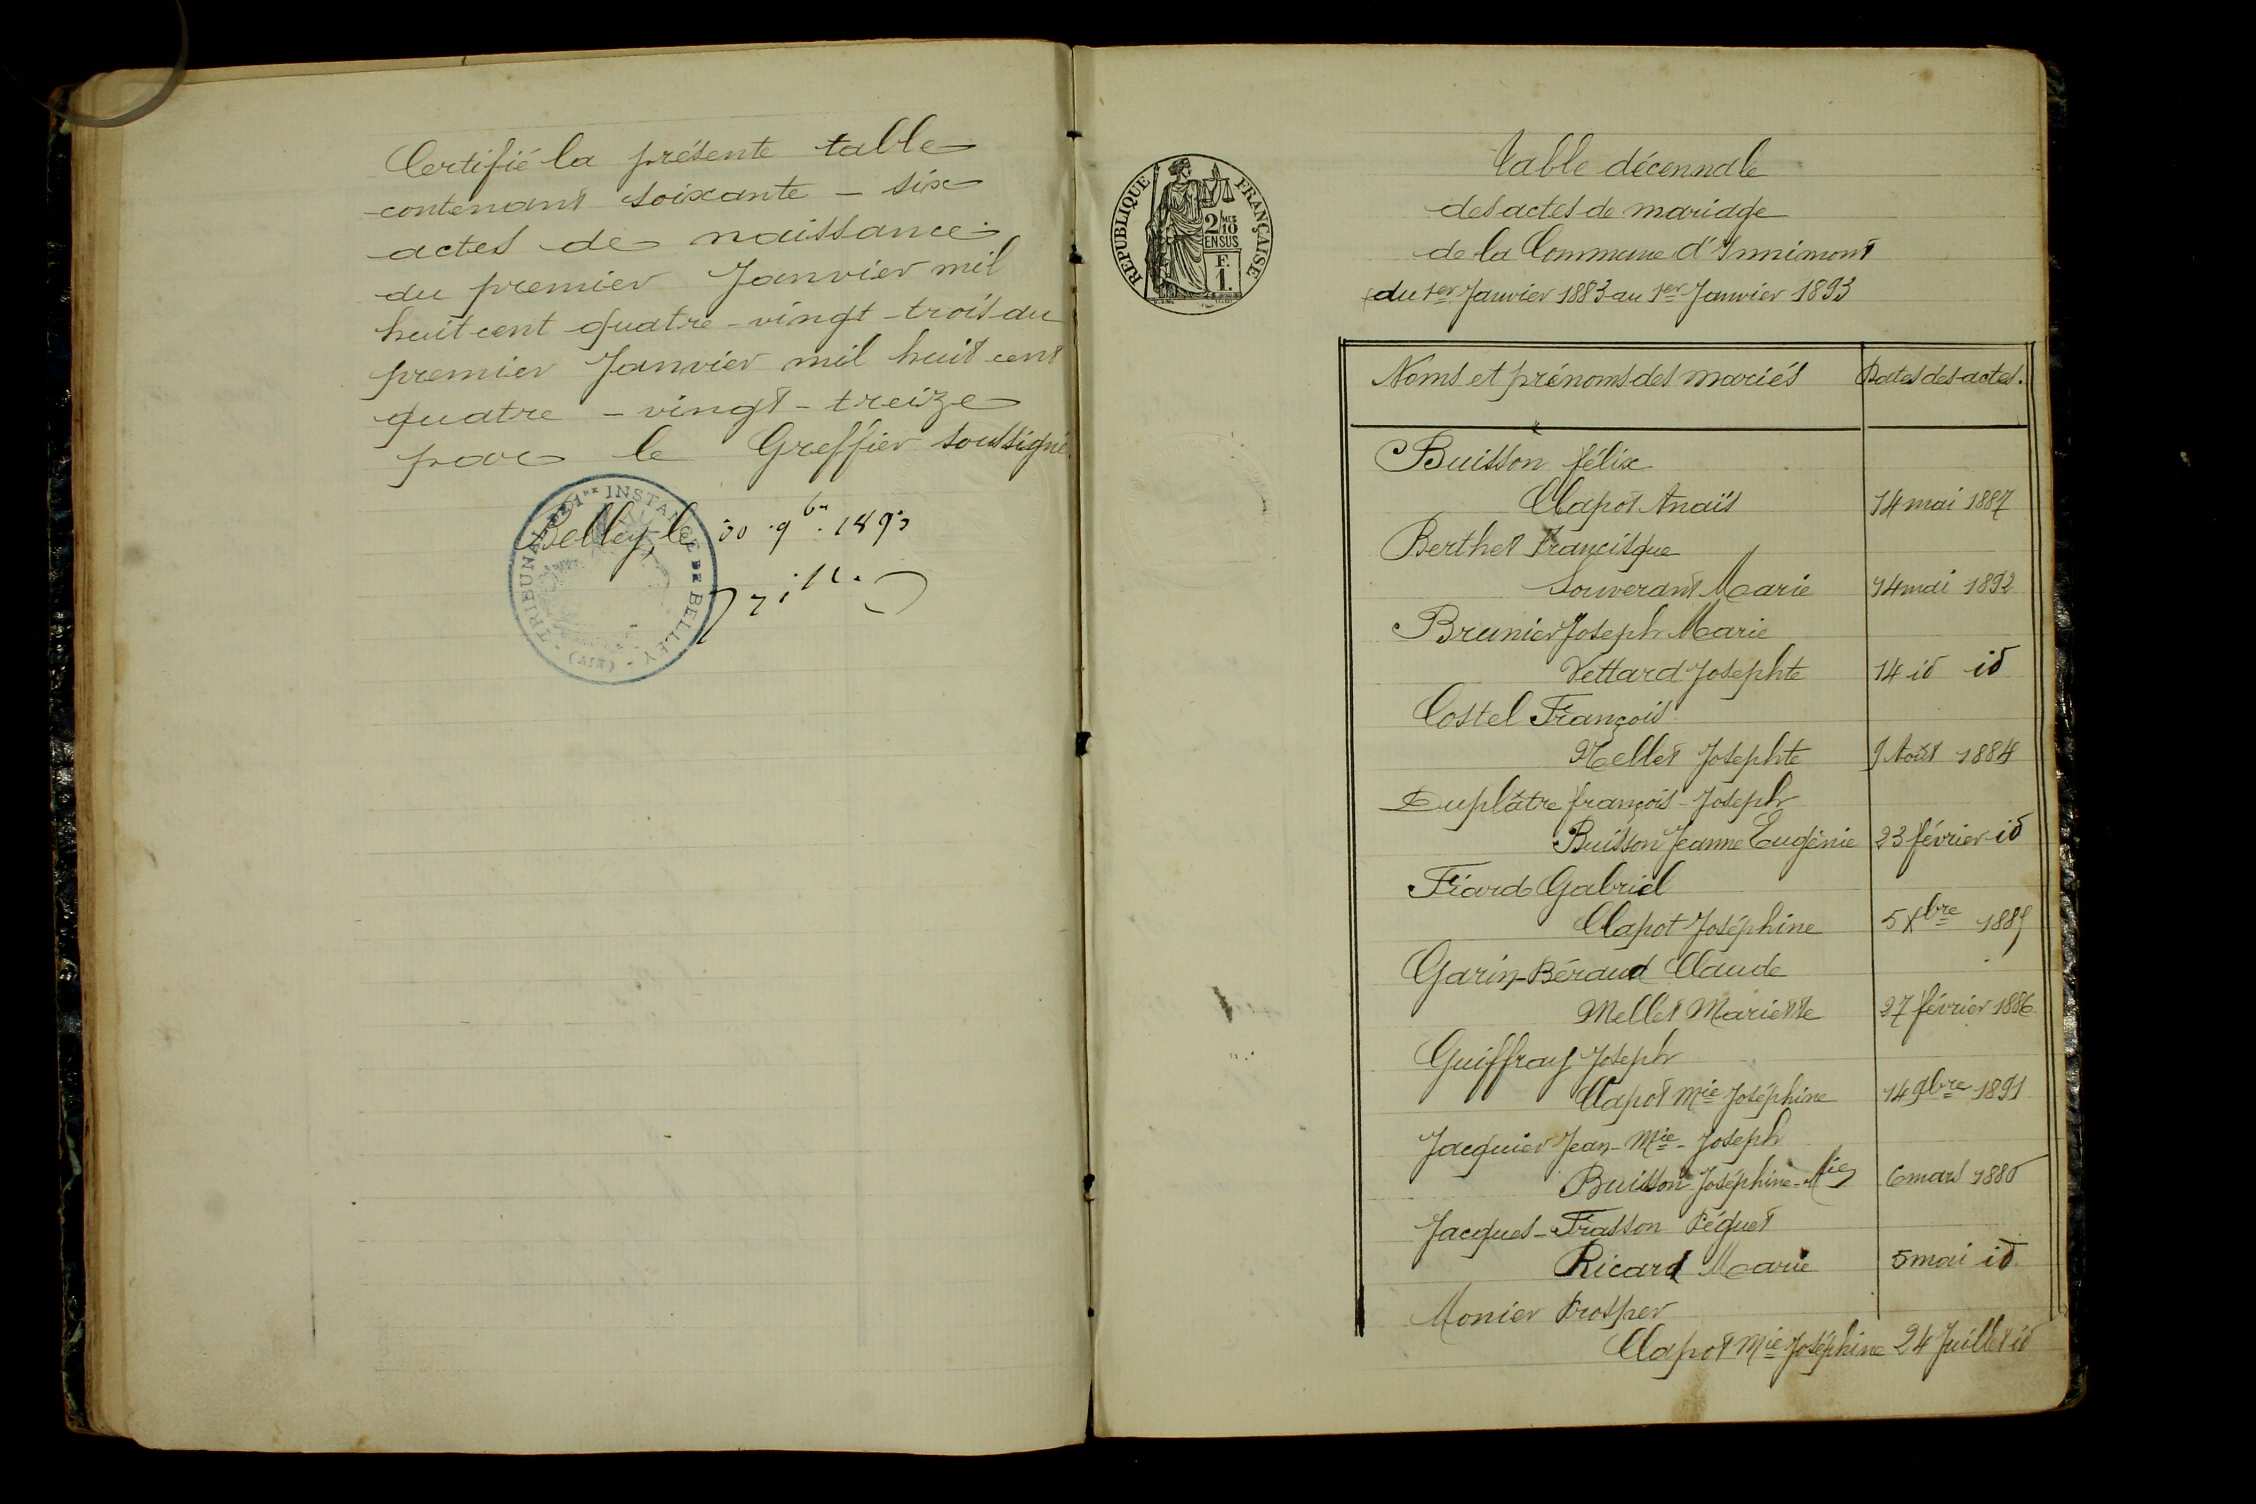 Certifié la présente table
contenant soixante - six
actes de naissance
du premier Janvier mil
huit cent quatre-vingt-trois du
premier Janvier mil huit cent
quatre - vingt - treize
par le Greffier soussigné.
Belley, le 30 9bre 1893
TRIBUNAL DE 1RE INSTANCE DE BELLEY
(AIN)
RÉPUBLIQUE FRANÇAISE
2/10 MES
EN SUS
F.
1.
Table décennale
des actes de mariage
de la Commune d'Innimont
du 1er Janvier 1883 au 1er Janvier 1893
Noms et prénoms des mariés Dates des actes.
Buisson félix
Clapot Anaïs 14 mai 1887
Berthet Francisque
Souverant Marie 14 mai 1892
Brunier Joseph Marie
Vettard Josephte 14 id id
Costel François
Mellet Josephte 9 Août 1884
Duplâtre françois-Joseph
Buisson Jeanne Eugénie 23 février id
Fiard Gabriel
Clapot Joséphine 5 Xbre
Garin-Béraud Claude
Mellet Mariette 27 février 1886
Guiffray Joseph
Clapot Mie Joséphine 14 9bre 1891
Jacquier Jean-Mie-Joseph
Buisson Joséphine-Mie 6 mars
Jacques-Frasson Péguet
Ricard Marie 5 mai id
Monier Prosper
Clapot Mie Joséphine 24 Juillet id